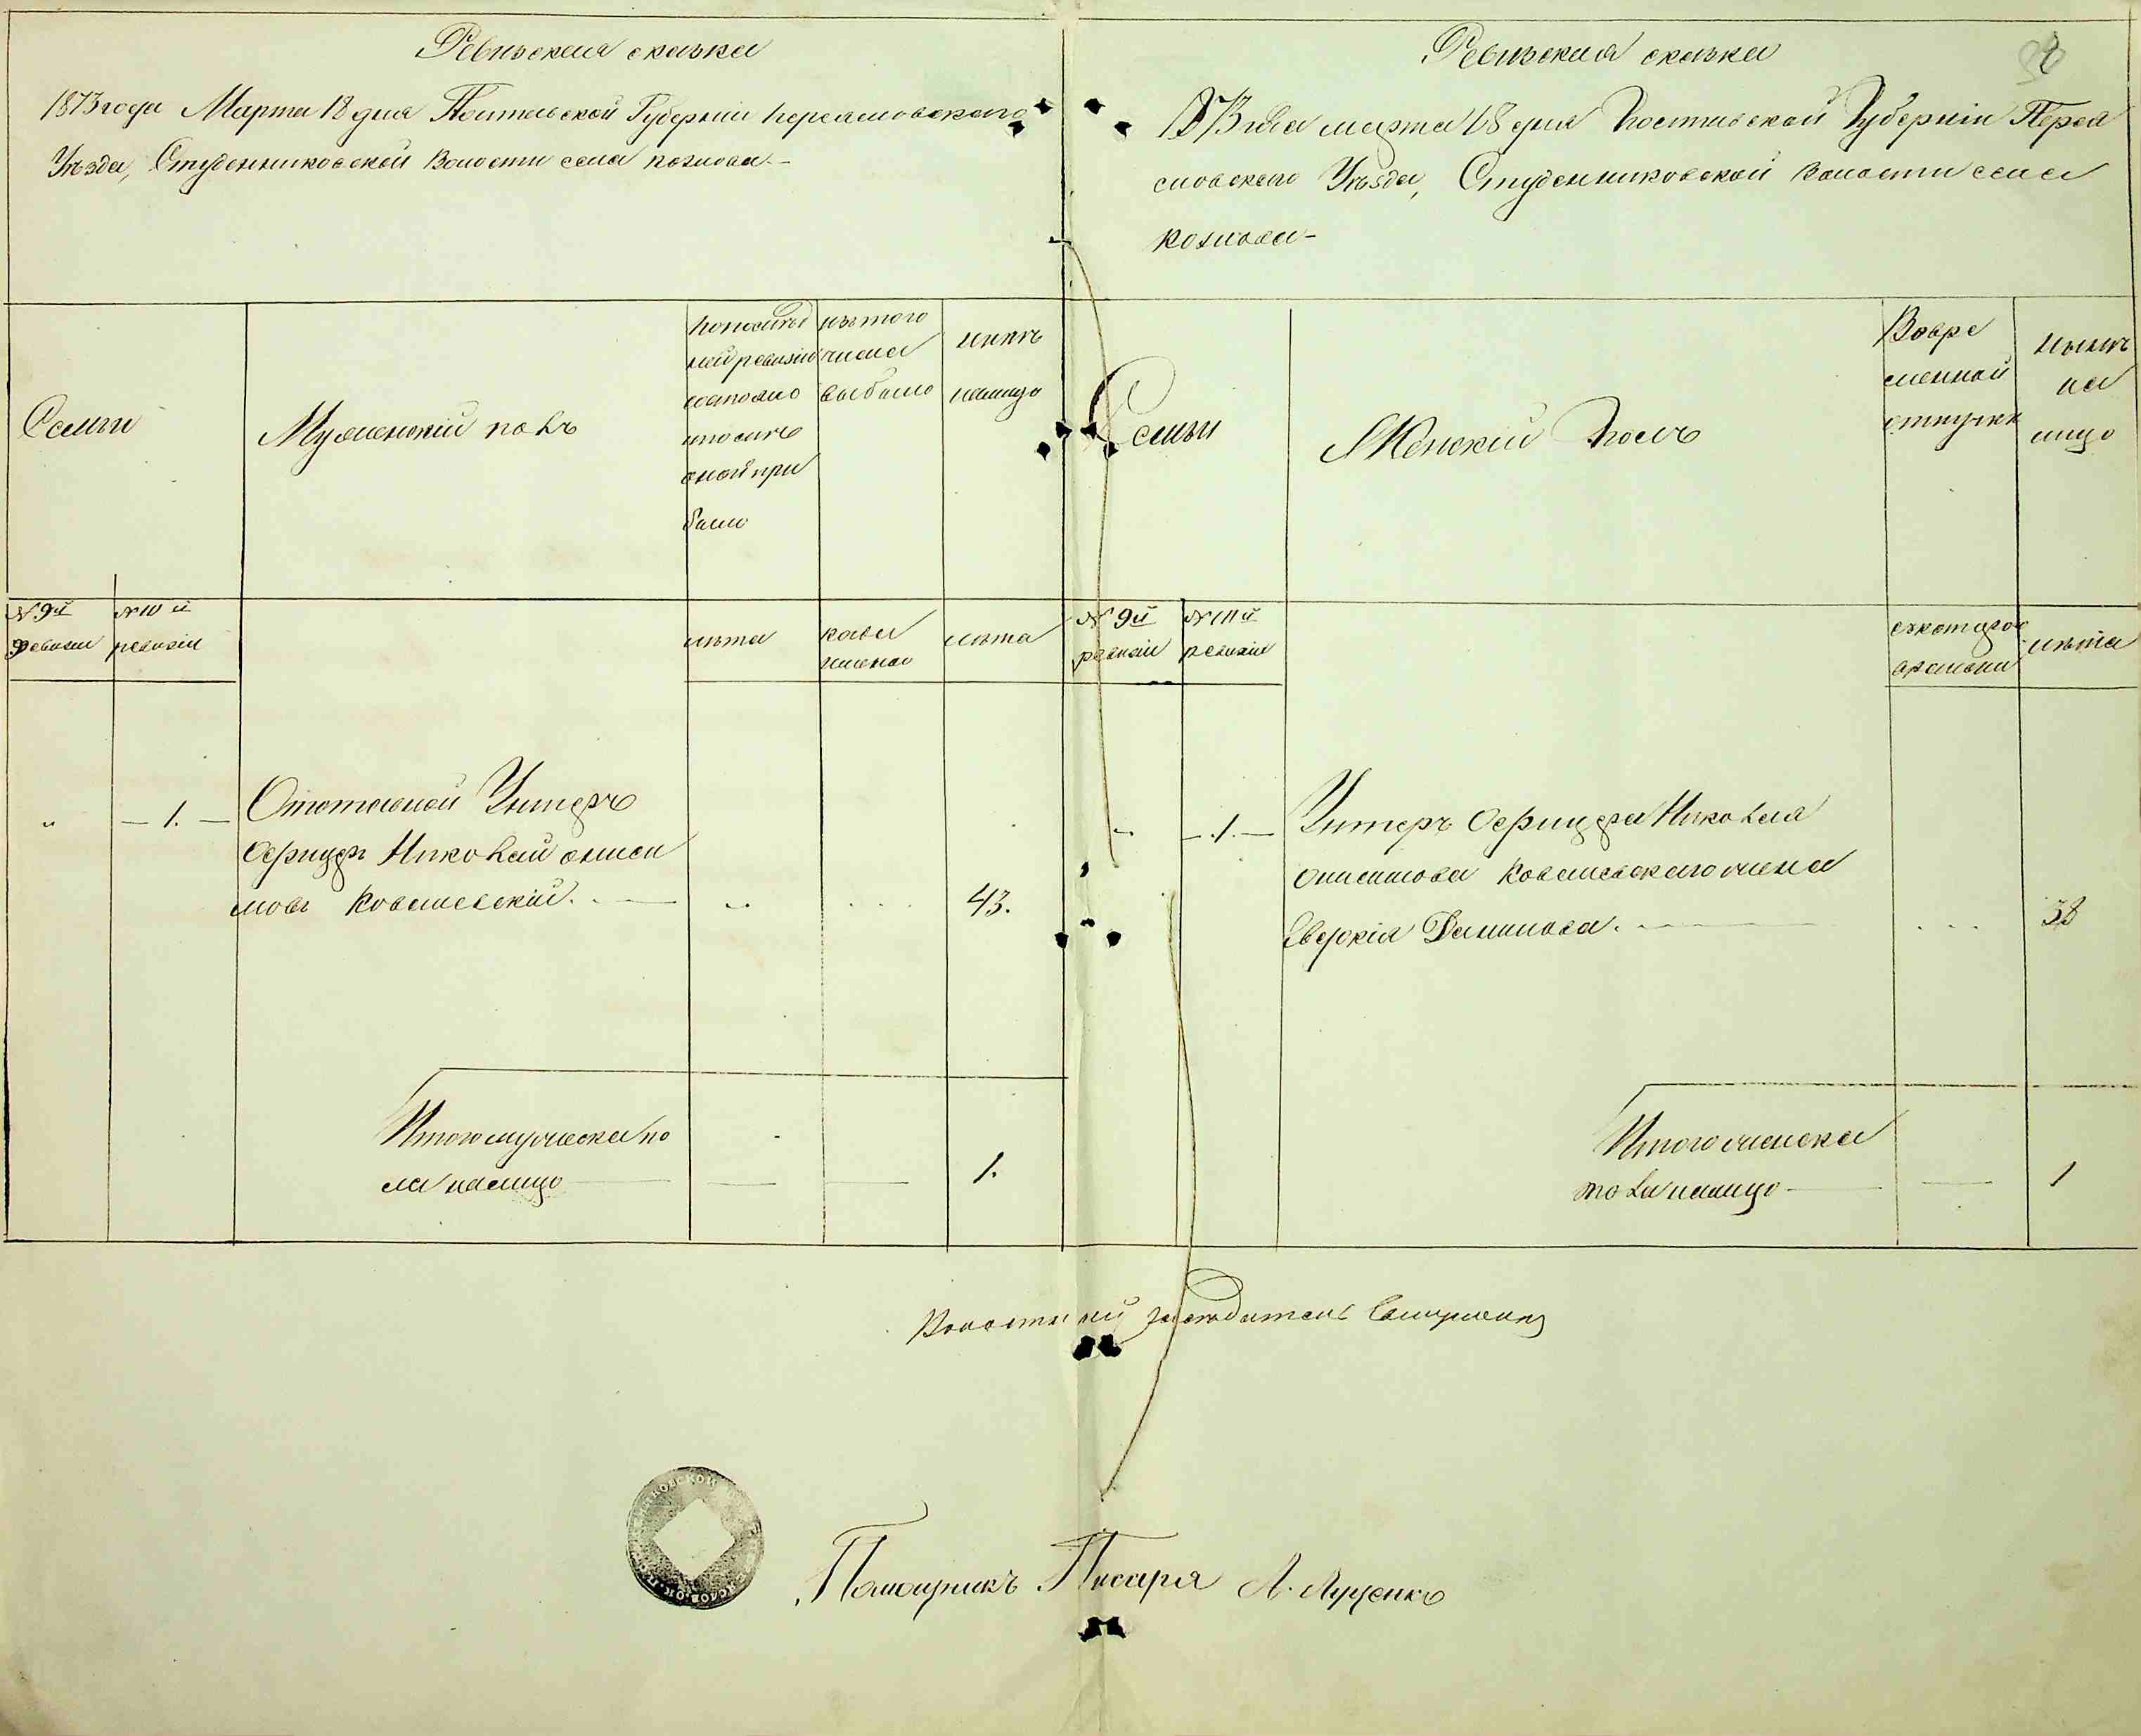 Ревизская сказка
1873 года Марта 18 дня Полтавской Губерніи Переяславского
Уѣзда, Студениковской Волости села Козлова.-
Семьи
Мужескій полъ
По послѣд
ней ревизіи
состояло
и послѣ
оной при
было
изъ того
числа
выбыло
нынѣ
налицо
№ 9й
ревизіи
№ 10й
ревизіи
лѣта
когда
именно
лѣта
"
— 1. —
Отставной Унтеръ
Офицеръ Николай Аниси
мовъ Ковалевскій.
43.
Итого мужеска по
ла налицо
1.
Ревизская сказка
1873 года марта 18 дня Полтавской Губерніи Перея
славского Уѣзда, Студениковской Волости села
Козлова-
Семьи
Женскій Полъ
Во вре
менной
отлучкѣ
нынѣ
на
лицо
№ 9й
ревизіи
№ 10й
ревизіи
съ котораго
времени
лѣта
"
— 1. —
Унтеръ Офицера Николая
Анисимова Ковалевского жена
38
Итого женска
пола налицо
1
Волостный
Помощникъ Писаря Л. Луценко